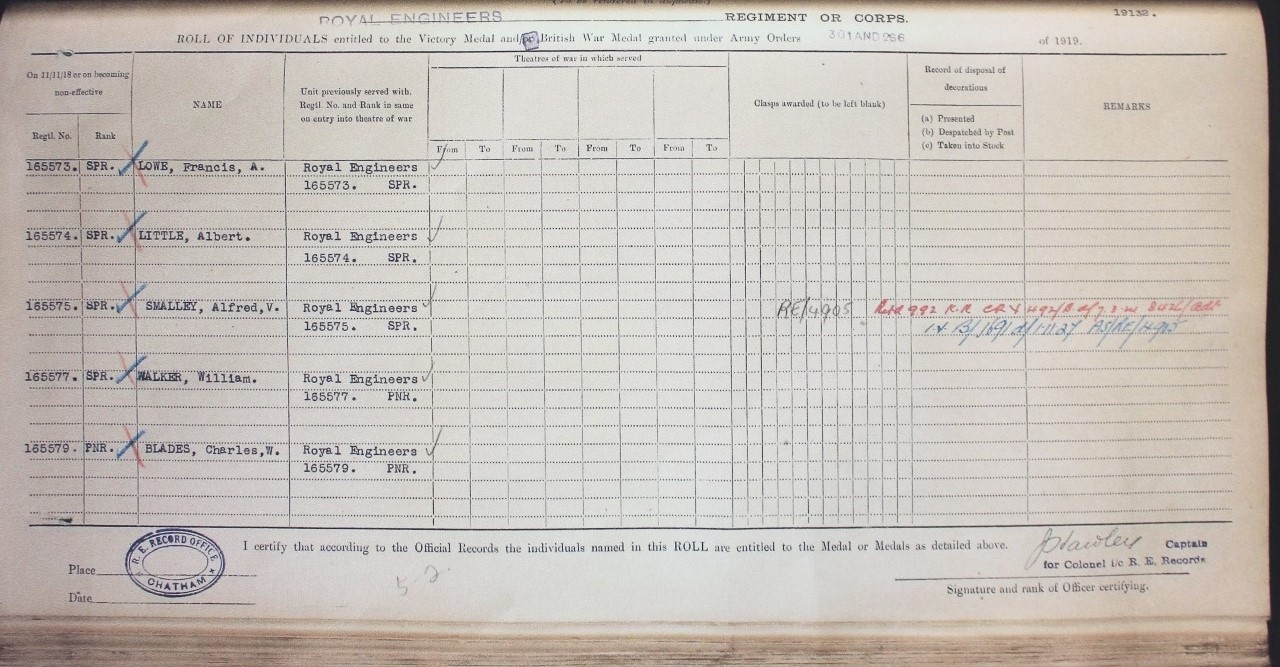 ROYAL ENGINEERS REGIMENT OR CORPS. 19132.
ROLL OF INDIVIDUALS entitled to the Victory Medal and/or British War Medal granted under Army Orders 301 AND 266 of 1919.
On 11/11/18 or on becoming non-effective
Regtl. No. Rank
NAME
Unit previously served with. Regtl. No. and Rank in same on entry into theatre of war
Theatres of war in which served
From To From To From To From To
Clasps awarded (to be left blank)
Record of disposal of decorations
(a) Presented
(b) Despatched by Post
(c) Taken into Stock
REMARKS
165573. SPR. LOWE, Francis, A. Royal Engineers
165573. SPR.
165574. SPR. LITTLE, Albert. Royal Engineers
165574. SPR.
165575. SPR. SMALLEY, Alfred,V. Royal Engineers RE/4905
165575. SPR.
165577. SPR. WALKER, William. Royal Engineers
165577. PNR.
165579. PNR. BLADES, Charles,W. Royal Engineers
165579. PNR.
I certify that according to the Official Records the individuals named in this ROLL are entitled to the Medal or Medals as detailed above.
Captain
for Colonel i/c R. E. Records
Signature and rank of Officer certifying.
Place
Date
R. E. RECORD OFFICE
CHATHAM
5 2.